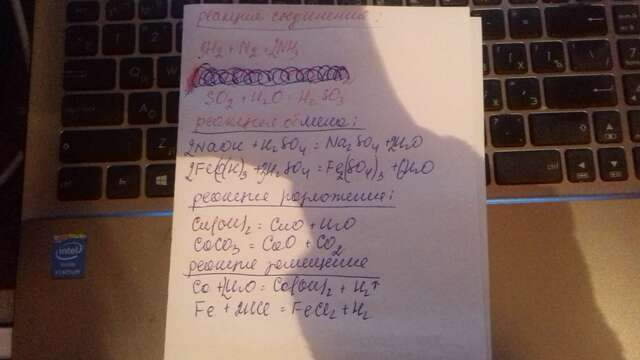 реакция соединения:
3H2 + N2 = 2NH3
SO2 + H2O = H2SO3
реакция обмена:
2NaOH + H2SO4 = Na2SO4 + 2H2O
2Fe(OH)3 + 3H2SO4 = Fe2(SO4)3 + 6H2O
реакция разложения:
Cu(OH)2 = CuO + H2O
CaCO3 = CaO + CO2
реакция замещения
Ca + 2H2O = Ca(OH)2 + H2↑
Fe + 2HCl = FeCl2 + H2
intel
inside
PENTIUM